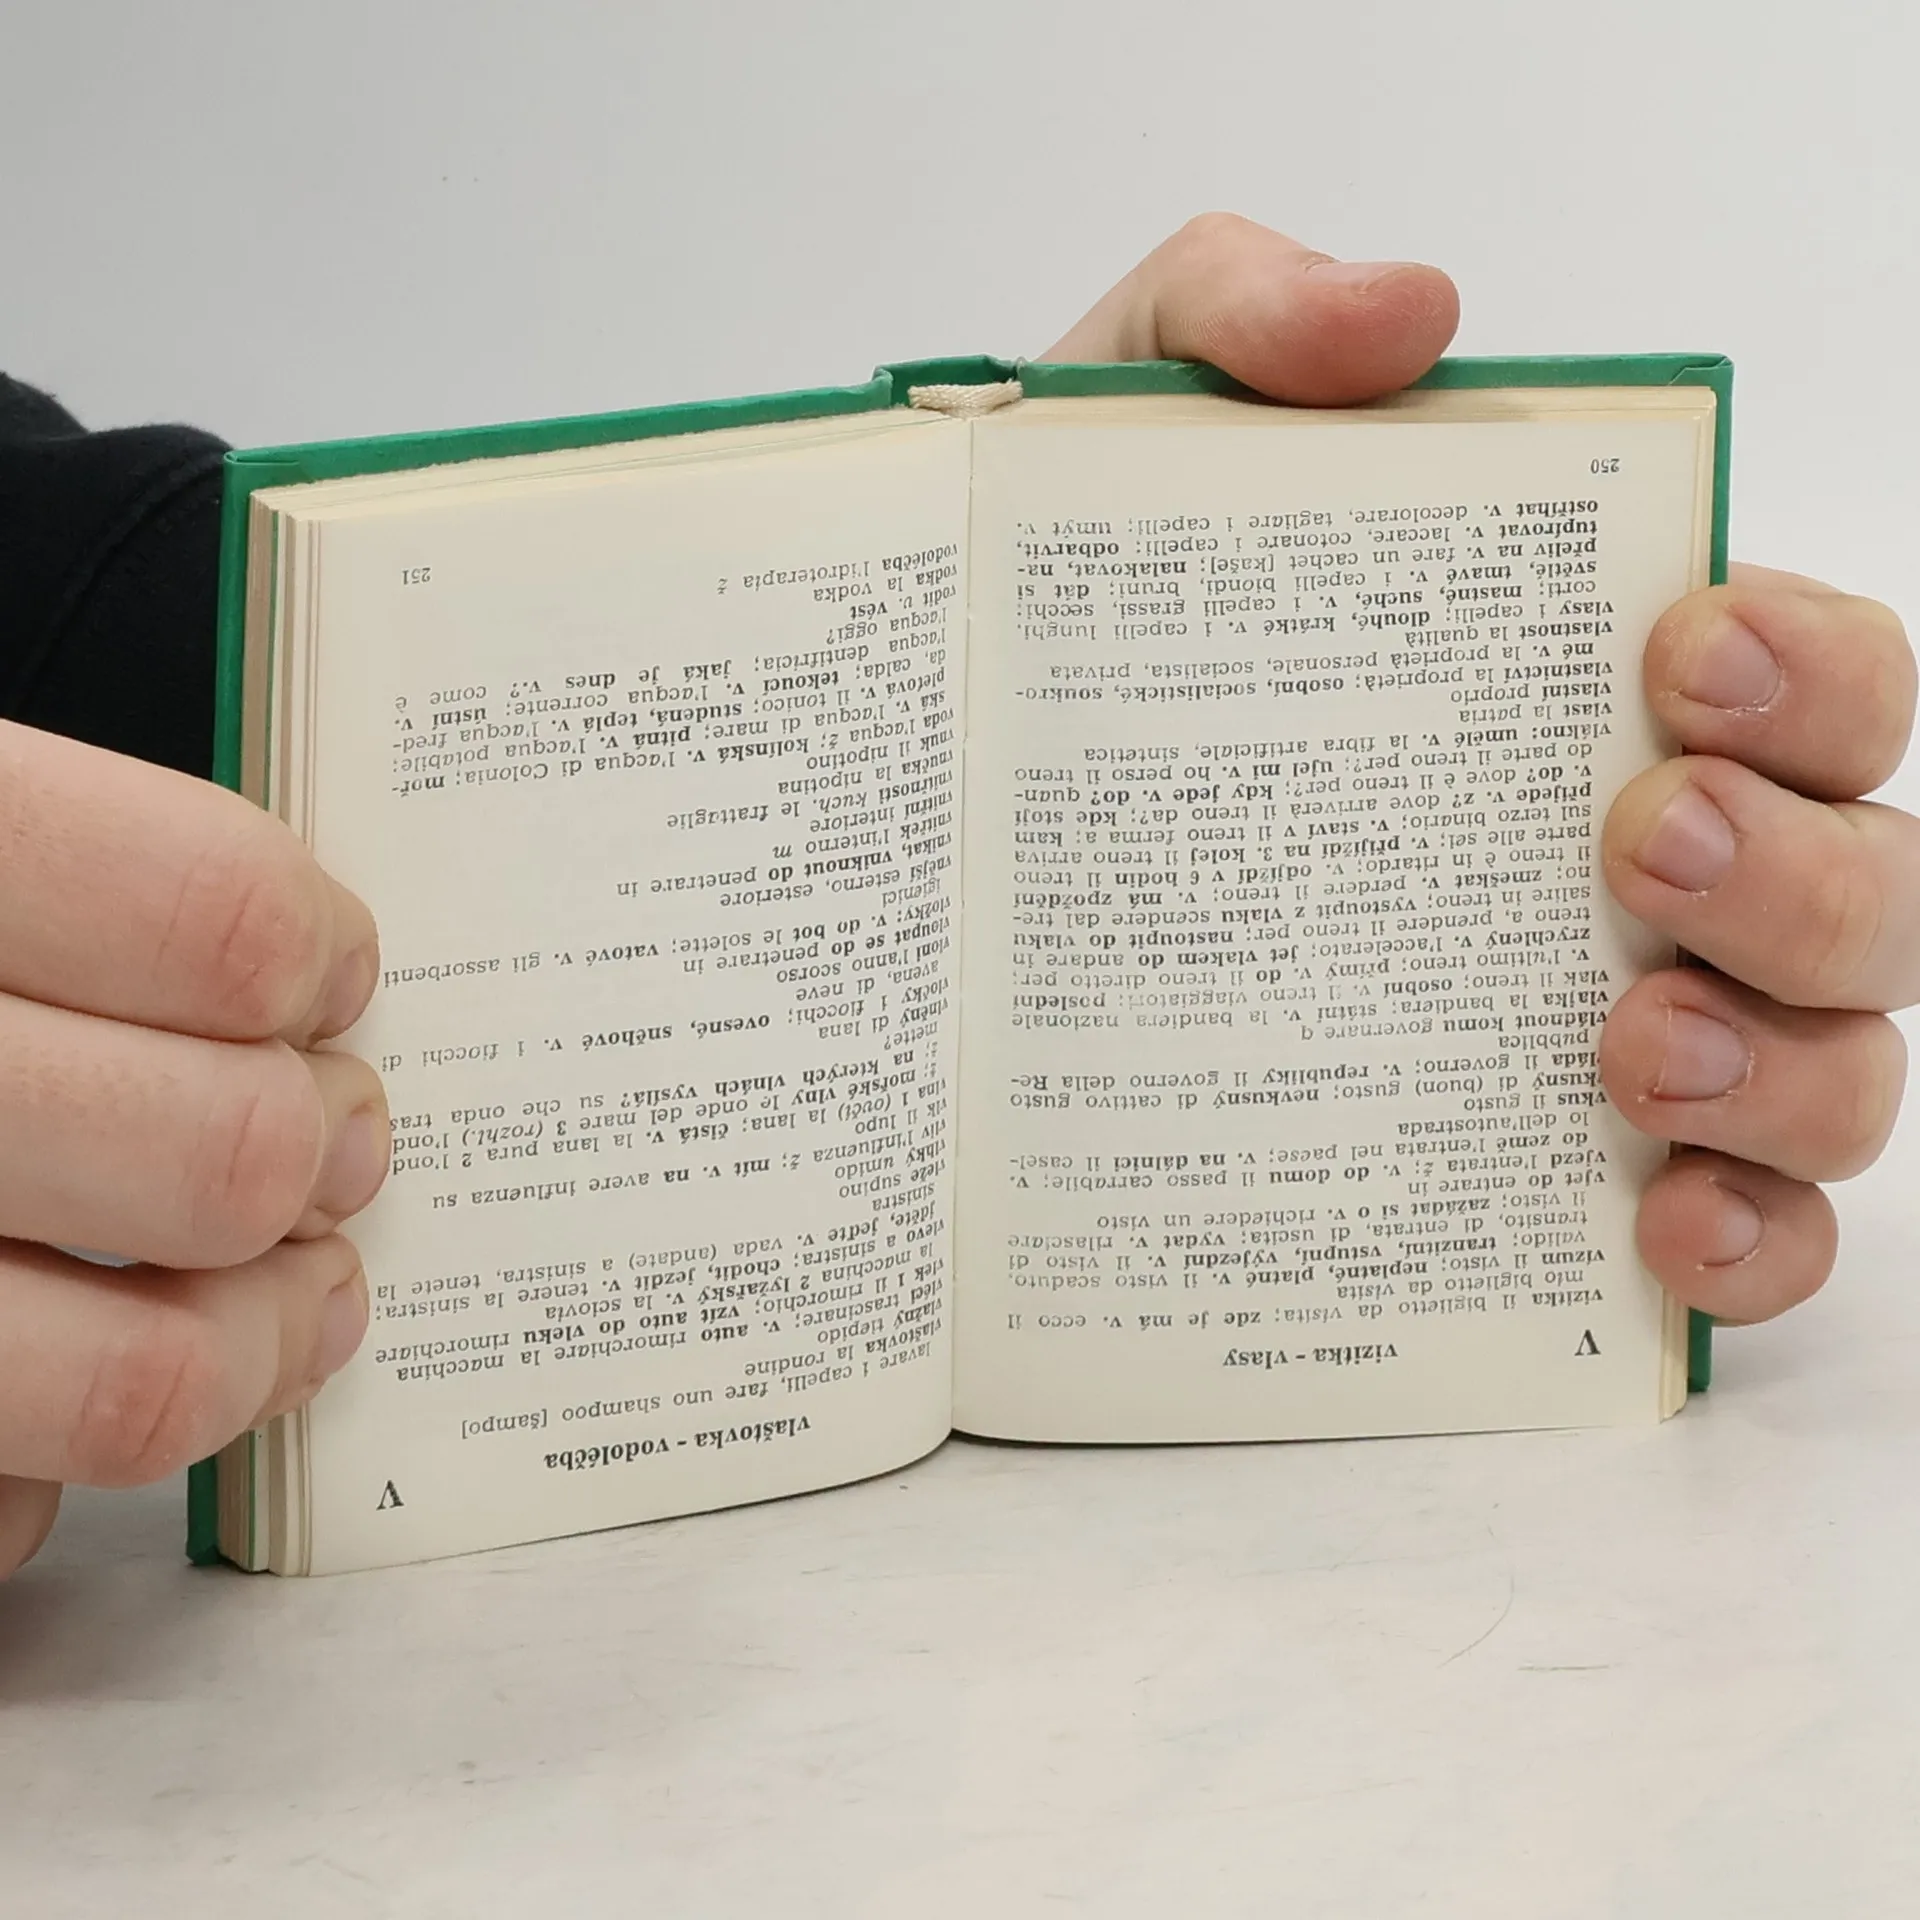 V
vizitka - vlasy
vizitka il biglietto da visita; zde je má v. ecco il
mio biglietto da visita
vízum il visto; neplatné, platné v. il visto scaduto,
valido; tranzitní, vstupní, výjezdní v. il visto di
transito, di entrata, di uscita; vydat v. rilasciare
il visto; zažádat si o v. richiedere un visto
vjet do entrare in
vjezd l'entrata ž; v. do domu il passo carrabile; v.
do země l'entrata nel paese; v. na dálnici il casel-
lo dell'autostrada
vkus il gusto
vkusný di (buon) gusto; nevkusný di cattivo gusto
vláda il governo; v. republiky il governo della Re-
pubblica
vládnout komu governare q
vlajka la bandiera; státní v. la bandiera nazionale
vlak il treno; osobní v. il treno viaggiatori; poslední
v. l'ultimo treno; přímý v. do il treno diretto per;
zrychlený v. l'accelerato; jet vlakem do andare in
treno a, prendere il treno per; nastoupit do vlaku
salire in treno; vystoupit z vlaku scendere dal tre-
no; zmeškat v. perdere il treno; v. má zpoždění
il treno è in ritardo; v. odjíždí v 6 hodin il treno
parte alle sei; v. přijíždí na 3. kolej il treno arriva
sul terzo binario; v. staví v il treno ferma a; kam
přijede v. z? dove arriverà il treno da?; kde stojí
v. do? dove è il treno per?; kdy jede v. do? quan-
do parte il treno per?; ujel mi v. ho perso il treno
vlákno: umělé v. la fibra artificiale, sintetica
vlast la patria
vlastní proprio
vlastnictví la proprietà; osobní, socialistické, soukro-
mé v. la proprietà personale, socialista, privata
vlastnost la qualità
vlasy i capelli; dlouhé, krátké v. i capelli lunghi,
corti; mastné, suché, v. i capelli grassi, secchi;
světlé, tmavé v. i capelli biondi, bruni; dát si
přeliv na v. fare un cachet [kaše]; nalakovat, na-
tupírovat v. laccare, cotonare i capelli; odbarvit,
ostříhat v. decolorare, tagliare i capelli; umýt v.
250
V
vlaštovka - vodoléčba
lavare i capelli, fare uno shampoo [šampo]
vlaštovka la rondine
vlažný tiepido
vléci trascinare; v. auto rimorchiare la macchina
vlek 1 il rimorchio; vzít auto do vleku rimorchiare
la macchina 2 lyžařský v. la sciovia
vlevo a sinistra; chodit, jezdit v. tenere la sinistra;
jděte, jeďte v. vada (andate) a sinistra, tenete la
sinistra
vleže supino
vlhký umido
vliv l'influenza ž; mít v. na avere influenza su
vlk il lupo
vlna 1 (ovčí) la lana; čistá v. la lana pura 2 l'ond
ž; mořské vlny le onde del mare 3 (rozhl.) l'ond
ž; na kterých vlnách vysílá? su che onda tras
mette?
vlněný di lana
vločky i fiocchi; ovesné, sněhové v. i fiocchi di
avena, di neve
vloni l'anno scorso
vloupat se do penetrare in
vložky: v. do bot le solette; vatové v. gli assorbenti
igienici
vnější esterno, esteriore
vnikat, vniknout do penetrare in
vnitřek l'interno m
vnitřní interiore
vnitřnosti kuch. le frattaglie
vnučka la nipotina
vnuk il nipotino
voda l'acqua ž; kolínská v. l'acqua di Colonia; moř-
ská v. l'acqua di mare; pitná v. l'acqua potabile;
pleťová v. il tonico; studená, teplá v. l'acqua fred-
da, calda; tekoucí v. l'acqua corrente; ústní v.
l'acqua dentifricia; jaká je dnes v.? come è
l'acqua oggi?
vodit v. vést
vodka la vodka
vodoléčba l'idroterapia ž
251